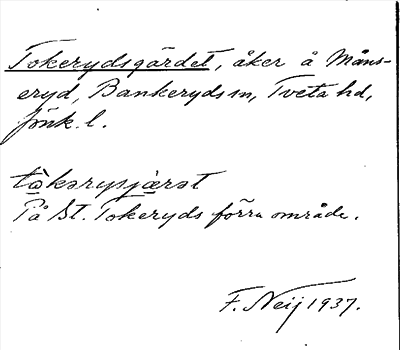 Tokerydsgärdet, åker å Måns-
eryd, Bankeryds sn, Tveta hd,
Jönk. l.
tò̱kərysjæ̱rət
På St. Tokeryds förra område.
F. Neij 1937.